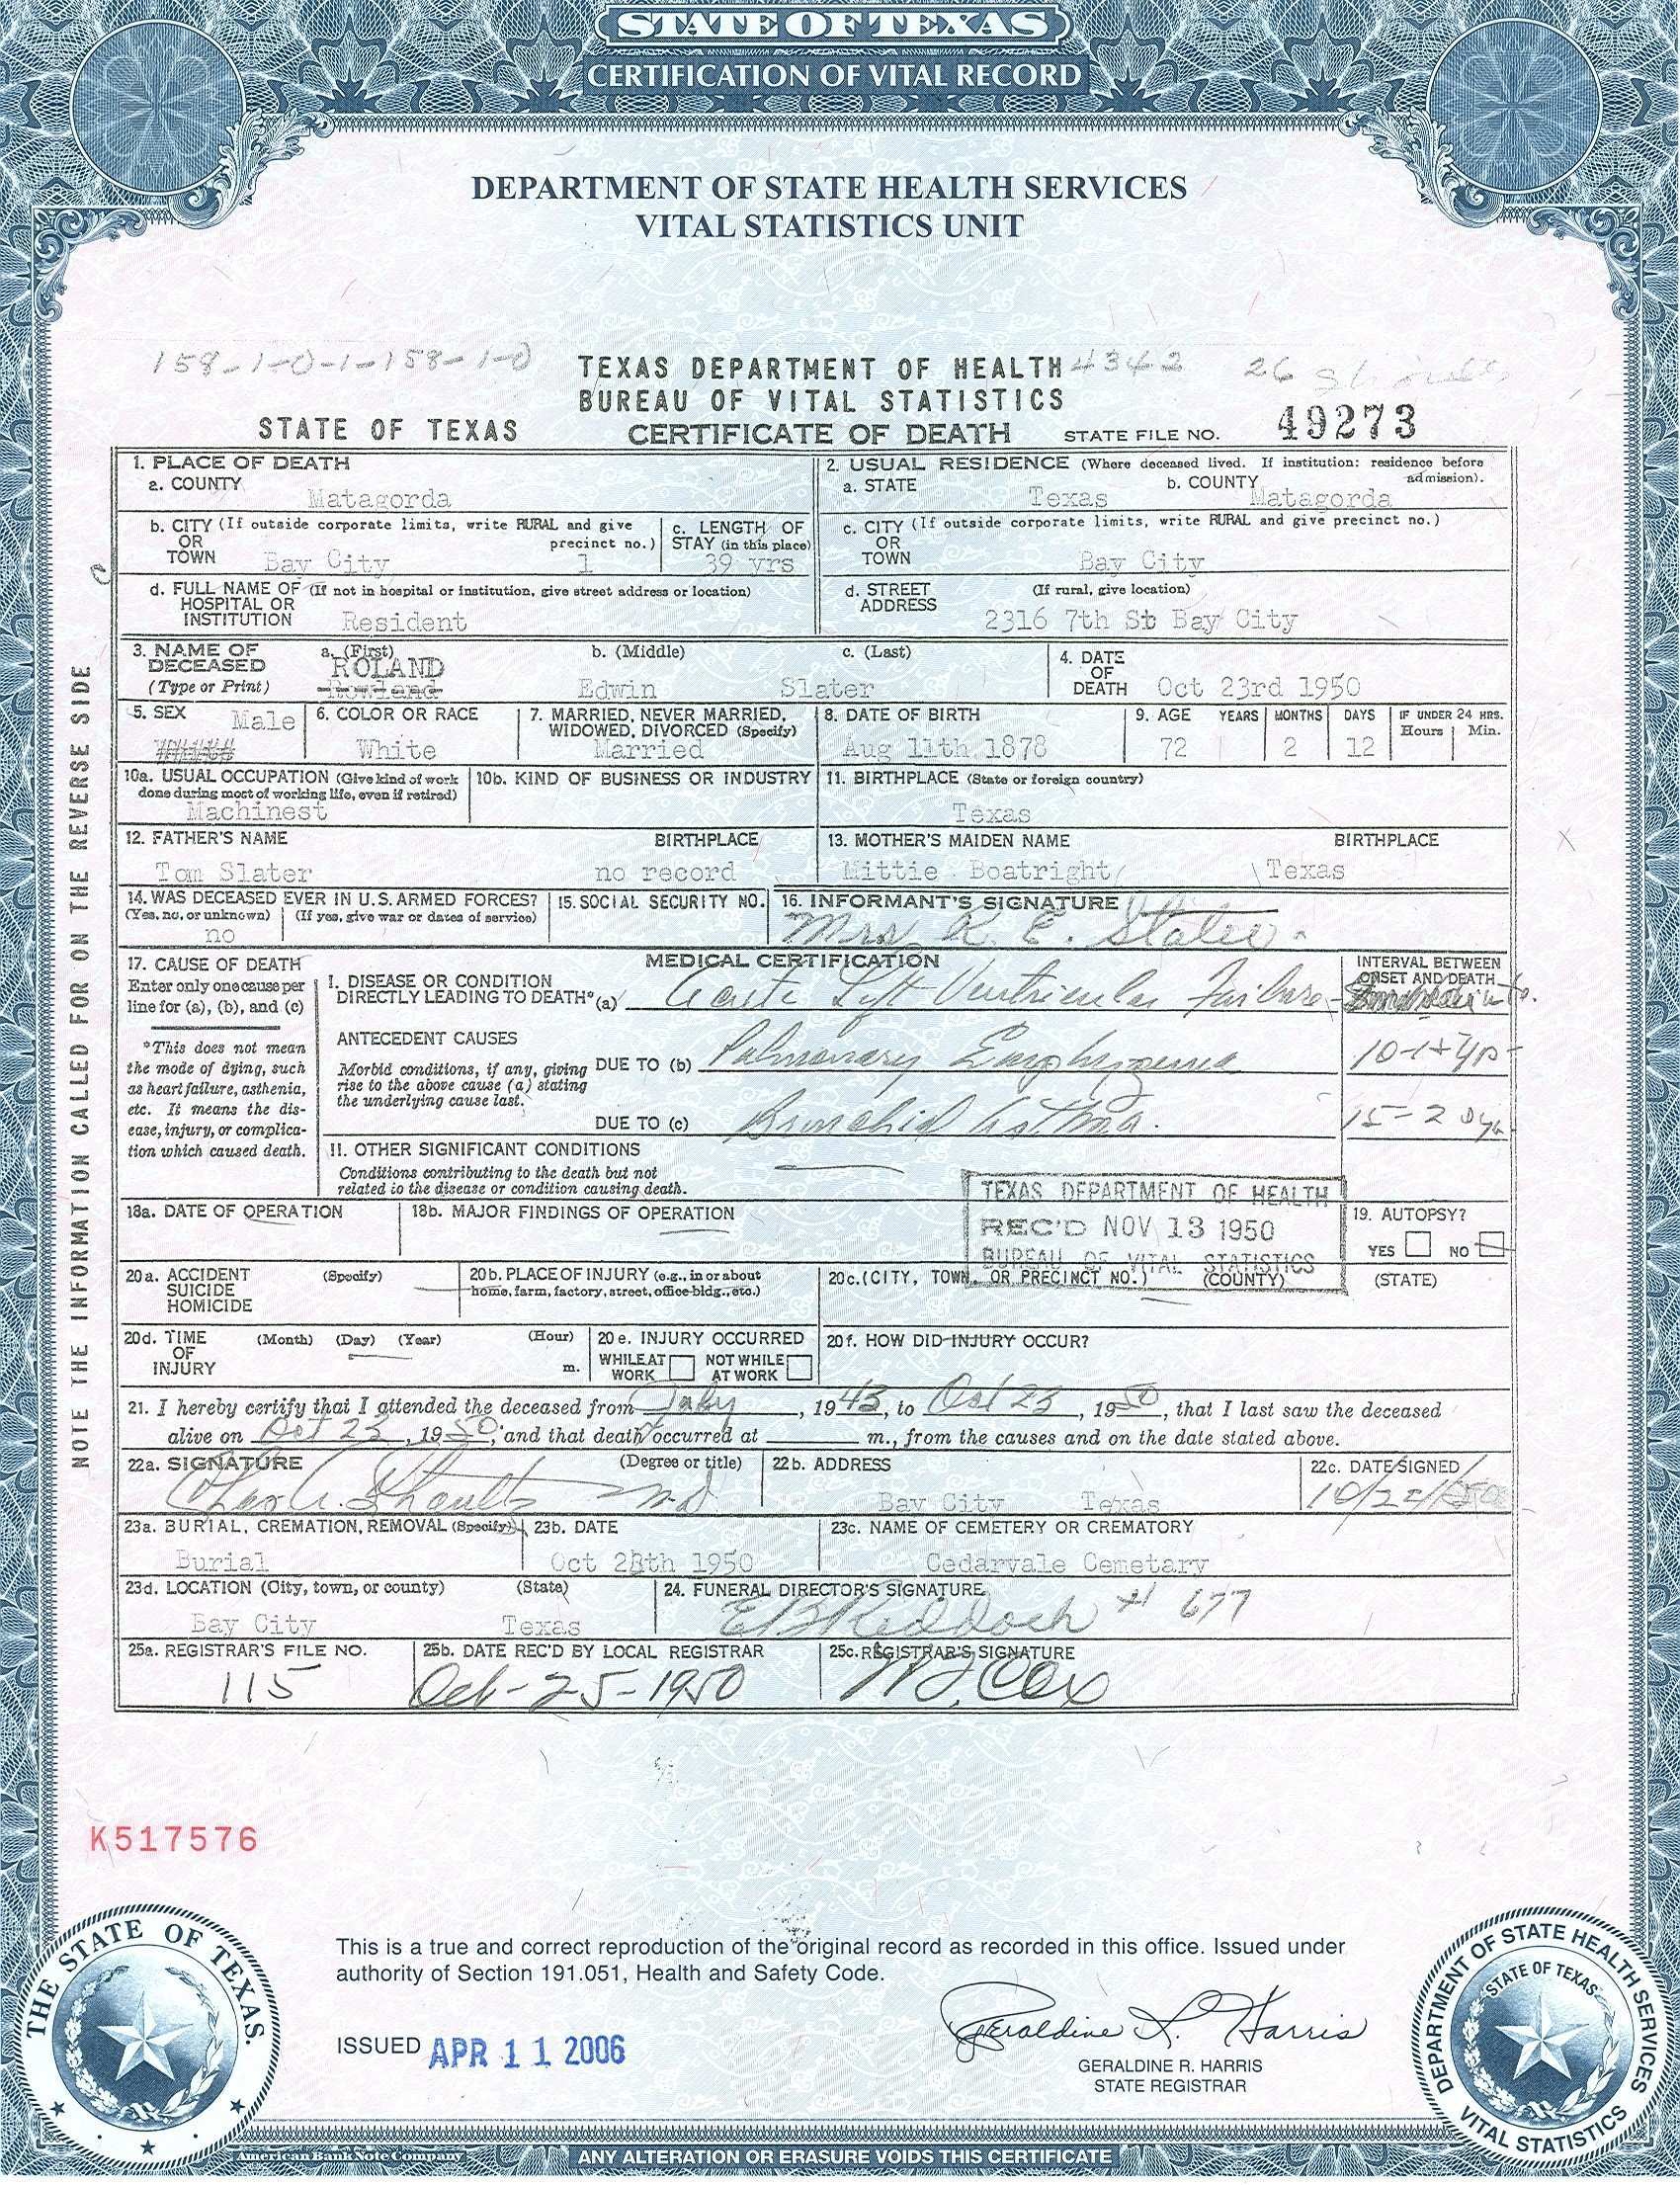 STATE OF TEXAS
CERTIFICATION OF VITAL RECORD
DEPARTMENT OF STATE HEALTH SERVICES
VITAL STATISTICS UNIT
158-1-0-1-158-1-0
TEXAS DEPARTMENT OF HEALTH 4342 26
BUREAU OF VITAL STATISTICS
STATE OF TEXAS CERTIFICATE OF DEATH STATE FILE NO. 49273
NOTE THE INFORMATION CALLED FOR ON THE REVERSE SIDE
1. PLACE OF DEATH
a. COUNTY Matagorda
2. USUAL RESIDENCE (Where deceased lived. If institution: residence before admission).
a. STATE Texas b. COUNTY Matagorda
b. CITY (If outside corporate limits, write RURAL and give precinct no.)
OR
TOWN Bay City 1
c. LENGTH OF STAY (in this place) 39 yrs
c. CITY (If outside corporate limits, write RURAL and give precinct no.)
OR
TOWN Bay City
d. FULL NAME OF (If not in hospital or institution, give street address or location)
HOSPITAL OR
INSTITUTION Resident
d. STREET ADDRESS (If rural, give location)
2316 7th St Bay City
3. NAME OF DECEASED (Type or Print)
a. (First) b. (Middle) c. (Last)
ROLAND
Rowland Edwin Slater
4. DATE OF DEATH Oct 23rd 1950
5. SEX Male
White
6. COLOR OR RACE White
7. MARRIED, NEVER MARRIED, WIDOWED, DIVORCED (Specify) Married
8. DATE OF BIRTH Aug 11th 1878
9. AGE YEARS MONTHS DAYS IF UNDER 24 HRS. Hours Min.
72 2 12
10a. USUAL OCCUPATION (Give kind of work done during most of working life, even if retired)
Machinest
10b. KIND OF BUSINESS OR INDUSTRY
11. BIRTHPLACE (State or foreign country)
Texas
12. FATHER'S NAME BIRTHPLACE
Tom Slater no record
13. MOTHER'S MAIDEN NAME BIRTHPLACE
Mittie Boatright Texas
14. WAS DECEASED EVER IN U.S. ARMED FORCES?
(Yes, no, or unknown) (If yes, give war or dates of service)
no
15. SOCIAL SECURITY NO.
16. INFORMANT'S SIGNATURE
Mrs R. E. Slater
17. CAUSE OF DEATH
Enter only one cause per line for (a), (b), and (c)
*This does not mean the mode of dying, such as heart failure, asthenia, etc. It means the disease, injury, or complication which caused death.
MEDICAL CERTIFICATION
INTERVAL BETWEEN ONSET AND DEATH
I. DISEASE OR CONDITION
DIRECTLY LEADING TO DEATH* (a) Acute Left Ventricular Failure
ANTECEDENT CAUSES
Morbid conditions, if any, giving rise to the above cause (a) stating the underlying cause last.
DUE TO (b) Pulmonary Emphysema
DUE TO (c) Bronchial Asthma. 15-20 yrs
II. OTHER SIGNIFICANT CONDITIONS
Conditions contributing to the death but not related to the disease or condition causing death.
TEXAS DEPARTMENT OF HEALTH
REC'D NOV 13 1950
BUREAU OF VITAL STATISTICS
18a. DATE OF OPERATION
18b. MAJOR FINDINGS OF OPERATION
19. AUTOPSY?
YES NO
20a. ACCIDENT SUICIDE HOMICIDE (Specify)
20b. PLACE OF INJURY (e.g., in or about home, farm, factory, street, office bldg., etc.)
20c. (CITY, TOWN, OR PRECINCT NO.) (COUNTY) (STATE)
20d. TIME OF INJURY (Month) (Day) (Year) (Hour) m.
20e. INJURY OCCURRED
WHILE AT WORK NOT WHILE AT WORK
20f. HOW DID INJURY OCCUR?
21. I hereby certify that I attended the deceased from July, 1943, to Oct 23, 1950, that I last saw the deceased
alive on Oct 23, 1950, and that death occurred at m., from the causes and on the date stated above.
22a. SIGNATURE (Degree or title)
Chas. A. Shoultz M.D.
22b. ADDRESS
Bay City Texas
22c. DATE SIGNED
23a. BURIAL, CREMATION, REMOVAL (Specify)
Burial
23b. DATE
Oct th 1950
23c. NAME OF CEMETERY OR CREMATORY
Cedarvale Cemetary
23d. LOCATION (City, town, or county) (State)
Bay City Texas
24. FUNERAL DIRECTOR'S SIGNATURE
E B Reddoch # 677
25a. REGISTRAR'S FILE NO.
115
25b. DATE REC'D BY LOCAL REGISTRAR
Oct-25-1950
25c. REGISTRAR'S SIGNATURE
Cox
K517576
This is a true and correct reproduction of the original record as recorded in this office. Issued under
authority of Section 191.051, Health and Safety Code.
ISSUED APR 11 2006
Geraldine R. Harris
GERALDINE R. HARRIS
STATE REGISTRAR
THE STATE OF TEXAS.
DEPARTMENT OF STATE HEALTH SERVICES
STATE OF TEXAS
VITAL STATISTICS
American Bank Note Company
ANY ALTERATION OR ERASURE VOIDS THIS CERTIFICATE